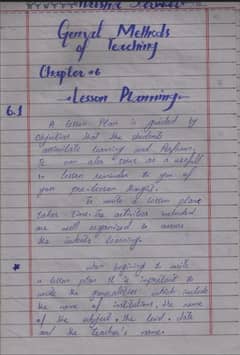 General Methods
of Teaching
Chapter #6
Lesson Planning
6.1
A lesson Plan is guided by
objective that the students
assimilate learning and Perform,
It can also serve as a useful
lesson reminder to you of
your pre-lesson thought.
To write a lesson plans
takes time. the activities included
are well organized to
the learning.
* when begining to write
a lesson plan it is important to
write the which include
the name of institutions, the name
of the subject, the level, date
and the teacher's name.